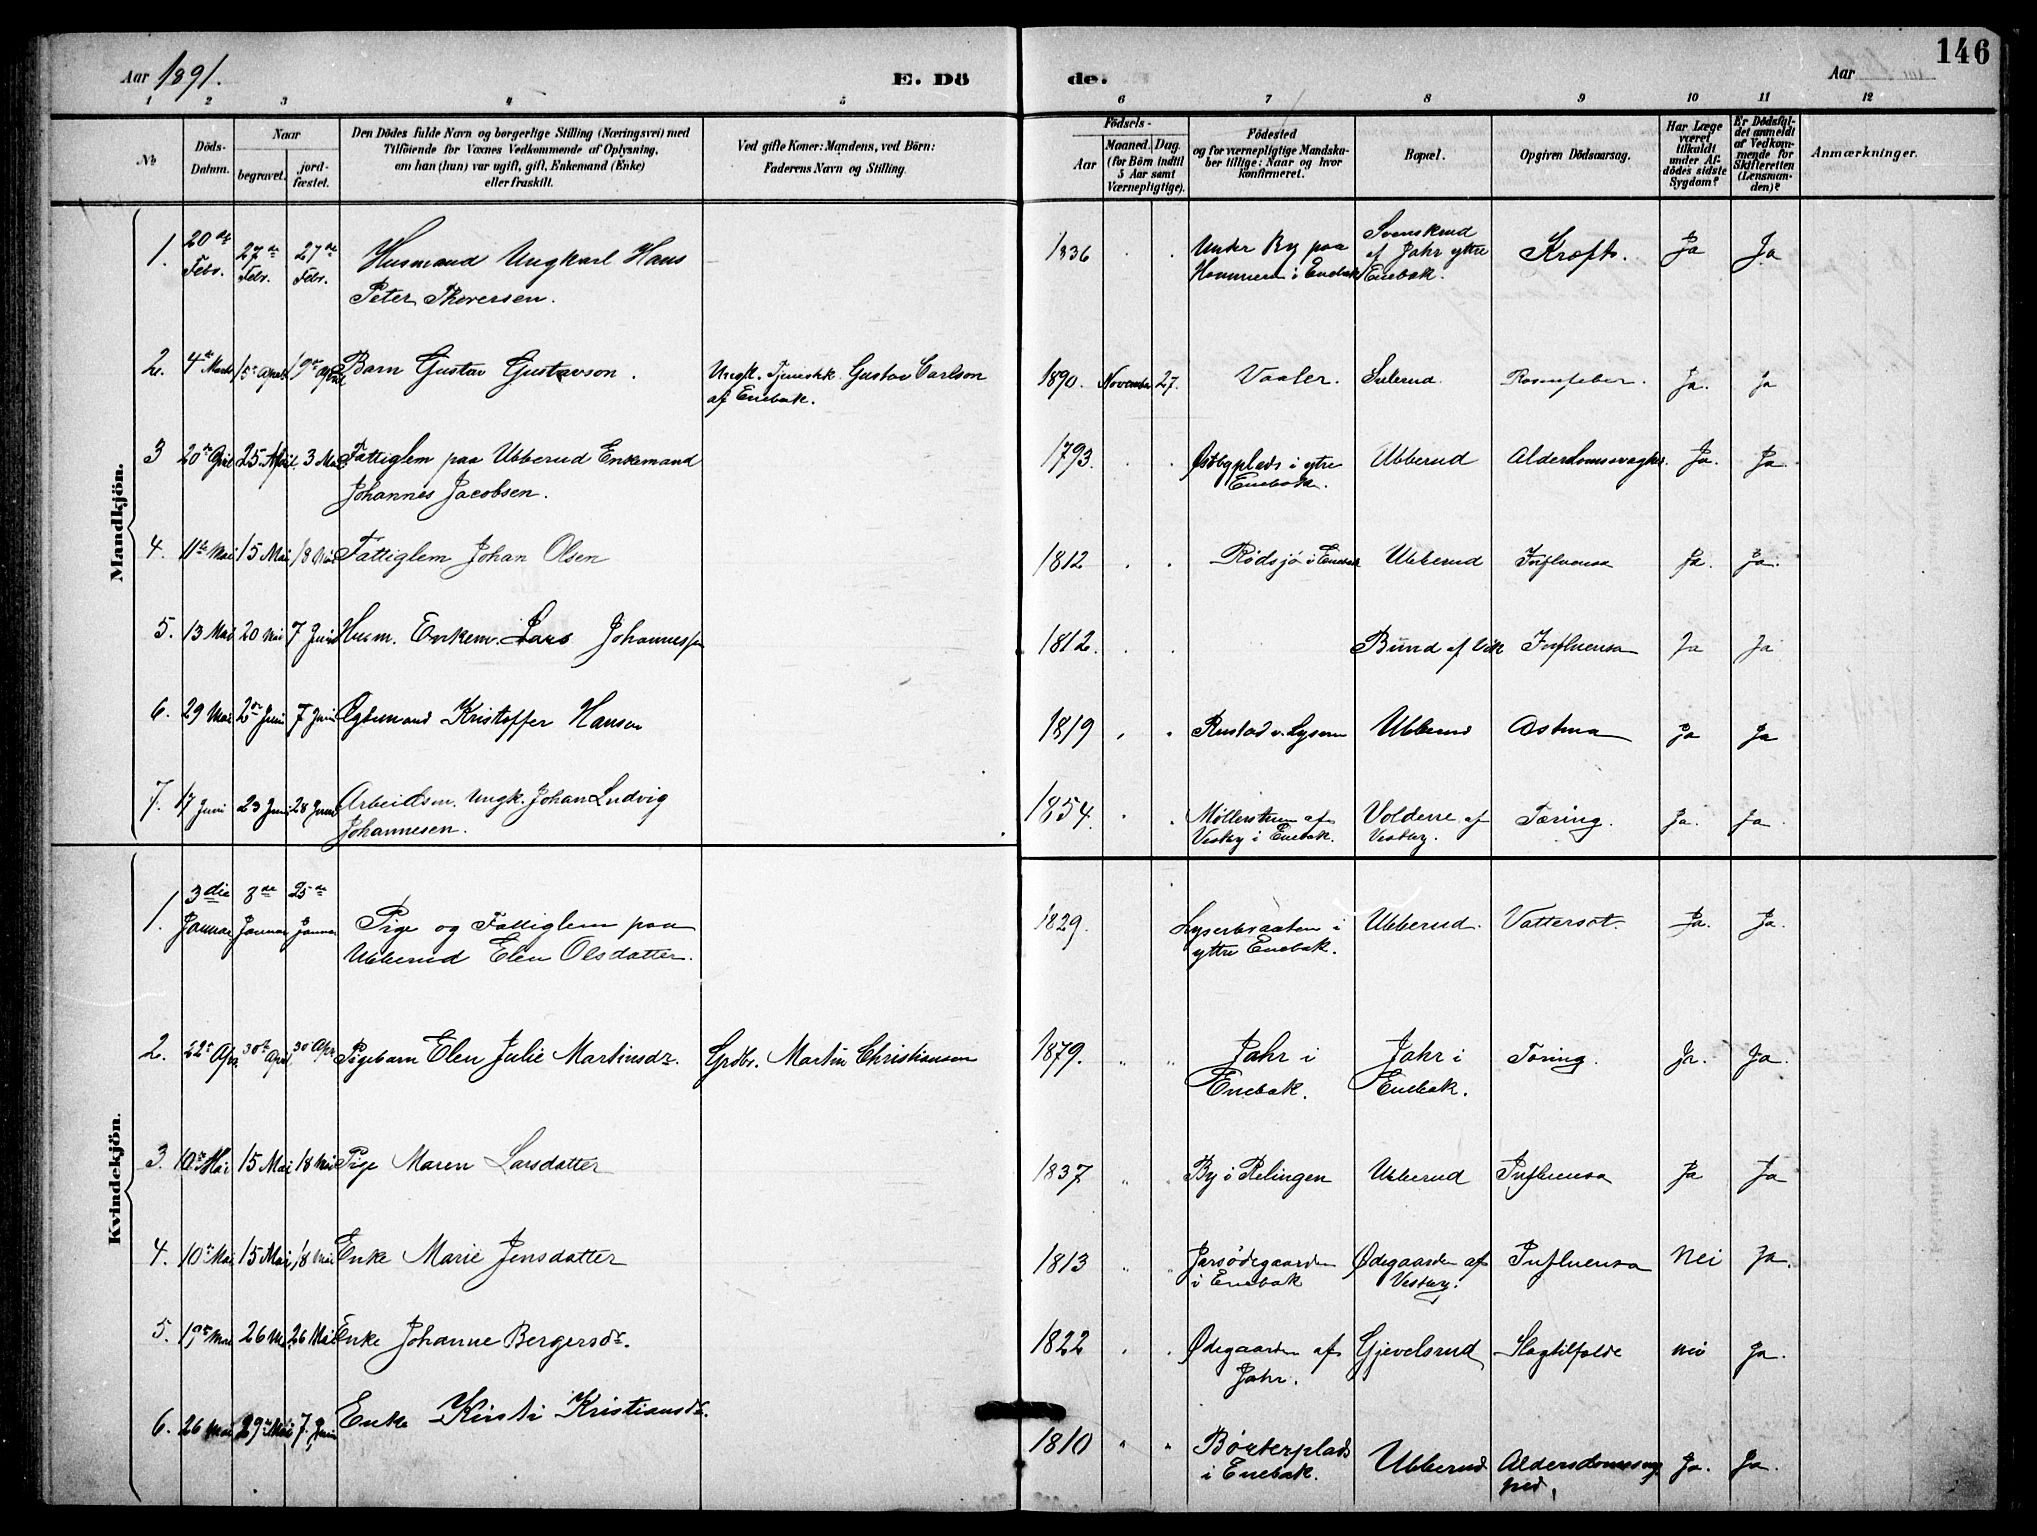 146
Aar 1891.
E. Dö
de.
Aar
1 2 3 4 5 6 7 8 9 10 11 12
No
Döds-Datum.
Naar
begravet.
jord-fæstet.
Den Dödes fulde Navn og borgerlige Stilling (Næringsvei) med
Tilföiende for Voxnes Vedkommende af Oplysning,
om han (hun) var ugift, gift, Enkemand (Enke)
eller fraskilt.
Ved gifte Koner: Mandens, ved Börn:
Faderens Navn og Stilling.
Födsels-
Aar
Maaned. Dag.
(for Börn indtil
5 Aar samt
Værnepligtige).
Födested
og for værnepligtige Mandska-
ber tillige: Naar og hvor
konfirmeret.
Bopæl.
Opgiven Dödsaarsag.
Har Læge
været
tilkaldt
under Af-
dödes sidste
Sygdom?
Er Dödsfal-
det anmeldt
af Vedkom-
mende for
Skifteretten
(Lensman-
den)?
Anmærkninger.
Mandkjön.
1. 20de Febr. 27de Febr. 27de Febr. Husmand Ungkarl Hans
Peter Thoversen. 1836 Under By paa
i Enebak Svenskrud
af Jahr ytre
Enebak. Kræft. Ja Ja
2. 4de Marts 15de April 19de April Barn Gustav Gustavson. Ungk. Tjenestk. Gustav Carlson
af Enebak. 1890. November 27. Vaaler. Sulerud. Ja. Ja
3 20de April 25 April 3 Mai Fattiglem paa Ubberud Enkemand
Johannes Jacobsen. 1793. Østbyplads i ytre
Enebak. Ubberud Ja. Ja
4. 11te Mai 15 Mai 18 Mai Fattiglem Johan Olsen 1812 Rødsjø i Enebak Ubberud Influensa Ja. Ja.
5. 13 Mai 20 Mai 7 Juni Husm. Enkem. Lars Johannessen 1812. Bund af Vik Influensa Ja Ja
6. 29 Mai 2den Juni 7 Juni Ægtemand Kristoffer Hansen 1819 Rustad v. Lysern Ubberud Astma Ja Ja
7. 17 Juni 23 Juni 28 Juni Arbeidsm. Ungk. Johan Ludvig
Johannesen. 1854. Møllerstuen af
Vestby i Enebak. af
Vestby. Tæring. Ja. Ja.
Kvindekjön.
1. 3die Januar 8de Januar 25de Januar Pige og Fattiglem paa
Ubberud Elen Olsdatter. 1829. i
ytre Enebak. Ubberud. Vattersot. Ja. Ja.
2. 22de Apr. 30te April 30 Apr. Pigebarn Elen Julie Martinsdr. Grdbr. Martin Christiansen 1879. Jahr i
Enebak. Jahr i
Enebak. Tæring. Ja. Ja.
3. 10de Mai 15 Mai 18 Mai Pige Maren Larsdatter 1837 By i Relingen Ubberud Influensa Ja Ja
4. 10de Mai 15 Mai 18 Mai Enke Marie Jensdatter 1813 Jarsødegaarden
i Enebak Ødegaarden af
Vestby. Influensa Nei Ja.
5. Mai 26 Mai 26 Mai Enke Johanne Bergersdr. 1822 Ødegaarden af
Jahr. Gjevelsrud Slagtilfælde nei Ja.
6. 26 Mai 29de Mai 7. Juni Enke Kirsti Kristiansdr. 1810 Børterplads
i Enebak. Ubberud Ja. Ja.